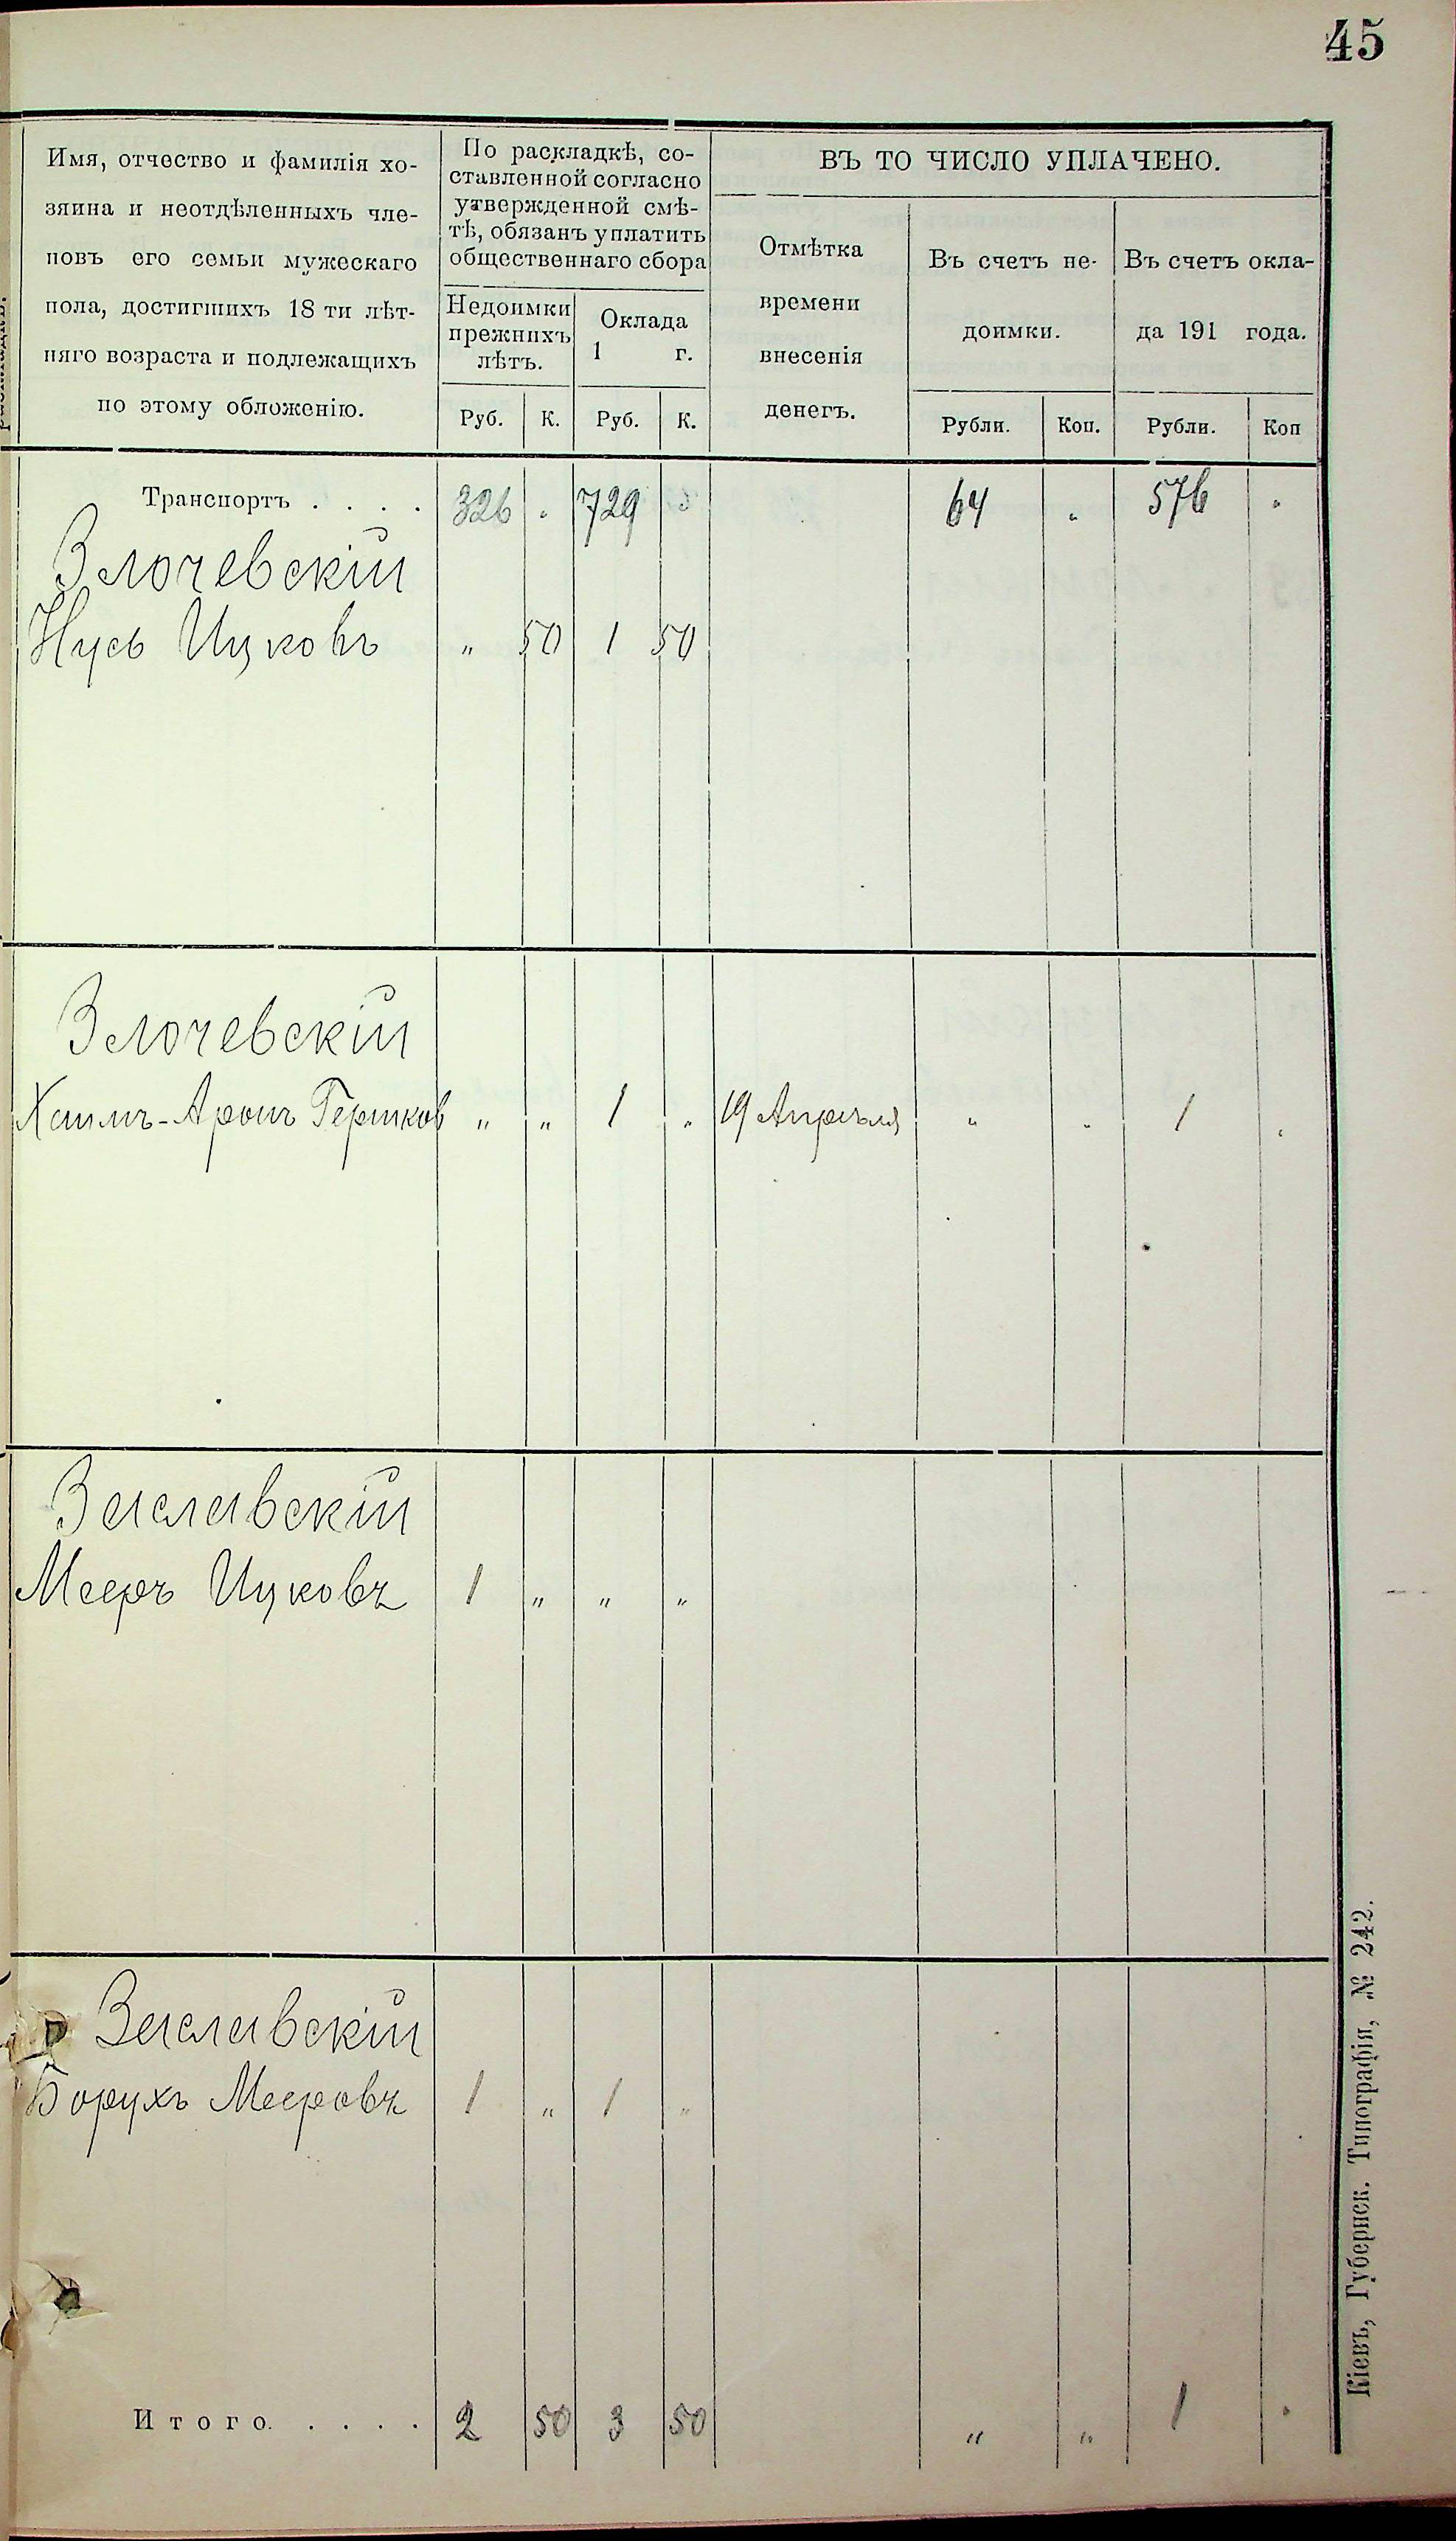 45
Имя, отчество и фамилія хо-
зяина и неотдѣленныхъ чле-
новъ его семьи мужескаго
пола, достигшихъ 18 ти лѣт-
няго возраста и подлежащихъ
по этому обложенію.
По раскладкѣ, со-
ставленной согласно
утвержденной смѣ-
тѣ, обязанъ уплатить
общественнаго сбора
Недоимки
прежнихъ
лѣтъ.
Оклада
1 г.
Руб. К. Руб. К.
ВЪ ТО ЧИСЛО УПЛАЧЕНО.
Отмѣтка
времени
внесенія
денегъ.
Въ счетъ не-
доимки.
Въ счетъ окла-
да 191 года.
Рубли. Коп. Рубли. Коп
Транспортъ . . . . 326 „ 729 „ 64 „ 576 „
Злочевскій
Нусь Ицковъ „ 50 1 50
Злочевскій
Хаимъ-Аронъ Гершков „ „ 1 „ 19 Апрѣля „ „ 1 „
Заславскій
Мееръ Ицковъ 1 „ „ „
Заславскій
Борухъ Мееровъ 1 „ 1 „
Итого. . . . . 2 50 3 50 „ „ 1 „
Кіевъ, Губернск. Типографія, № 242.